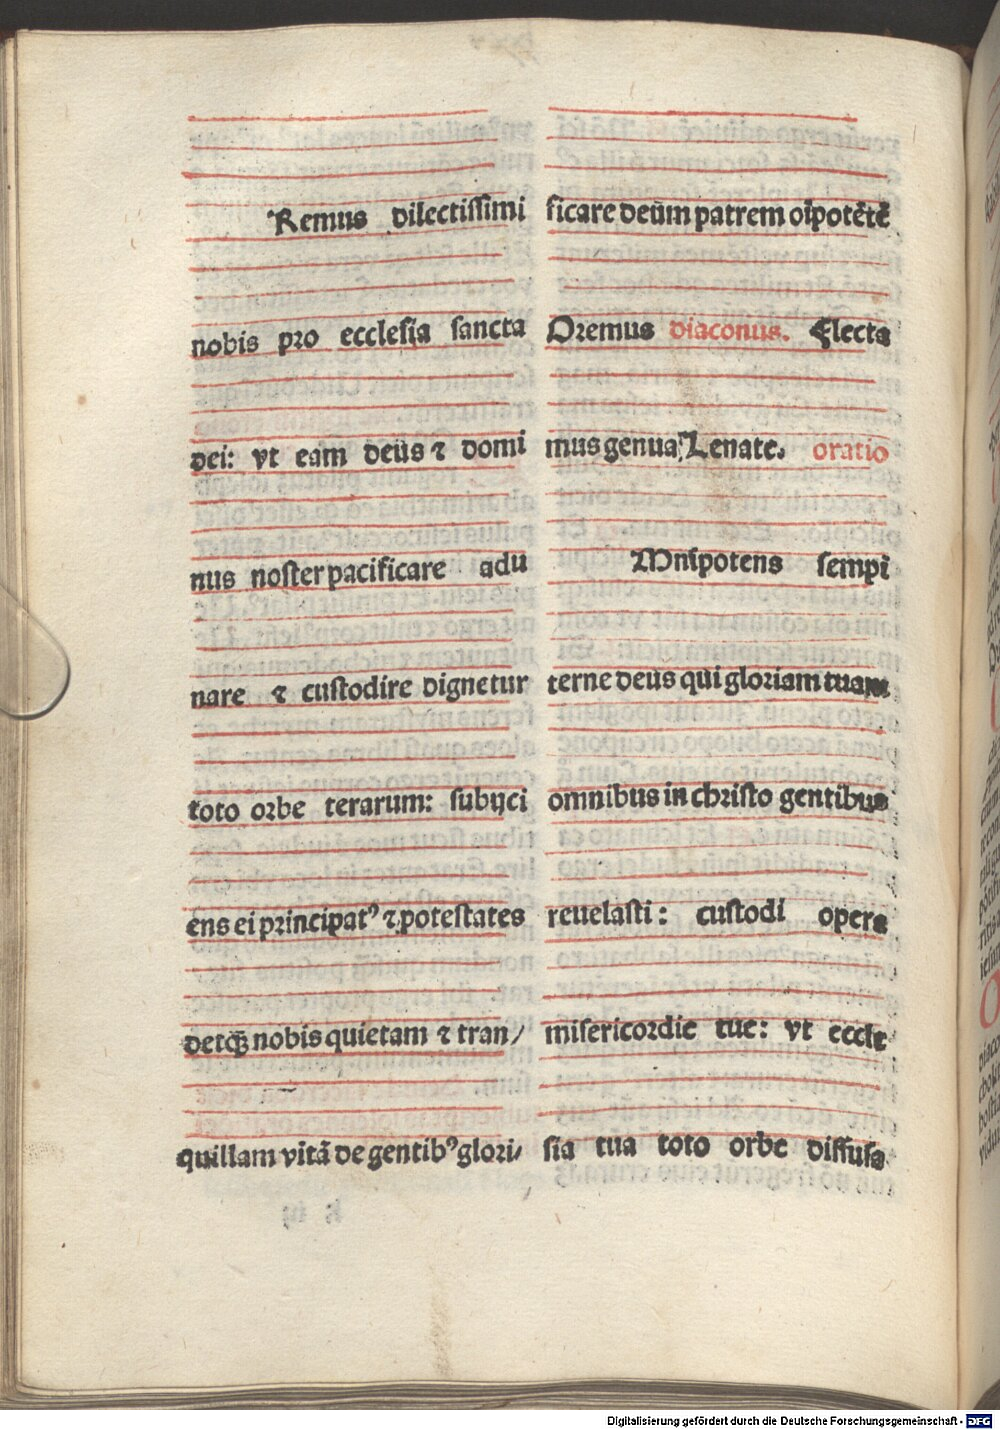 Remus dilectissimi
nobis pro ecclesia sancta
dei: vt eam deus ⁊ domi
nus noster pacificare adu
nare ⁊ custodire dignetur
toto orbe terarum: subijci
ens ei principatꝰ ⁊ potestates
detqꝫ nobis quietam ⁊ tran/
quillam vitã de gentibꝰ glori/
ficare deũm patrem oĩpotẽtẽ
Oremus diaconus. Flecta
mus genua. Leuate. oratio
Mnĩpotens sempi
terne deus qui gloriam tuam
omnibus in christo gentibus
reuelasti: custodi opera
misericordie tue: vt eccle
sia tua toto orbe diffusa
Digitalisierung gefördert durch die Deutsche Forschungsgemeinschaft - DFG